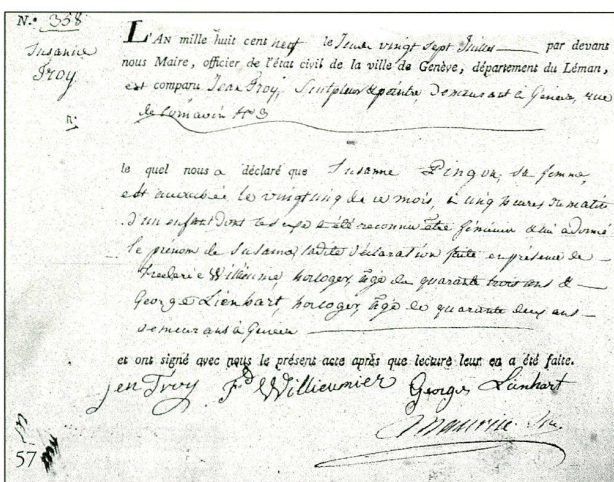 N.° 358
Susanne
Troy
L'AN mille huit cent neuf le Jeudi vingt sept Juillet par devant
nous Maire, officier de l'état civil de la ville de Genève, département du Léman,
est comparu Jean Troy, Sculpteur & peintre, demeurant à Genève, rue
de Cornavin N° 3
le quel nous a déclaré que Susanne Pingon, sa femme,
est accouchée le vingt cinq de ce mois, à cinq heures du matin
d'un enfant dont le sexe a été reconnu être féminin & lui a donné
le prénom de Susanne, ladite déclaration faite en présence de
Frederic Willieume, horloger, âgé de quarante trois ans &
George Lienhart, horloger, âgé de quarante deux ans
demeurans à Geneve
et ont signé avec nous le présent acte après que lecture leur en a été faite.
jen Troy Fd Willieumier Georges Lienhart
Maurice
57